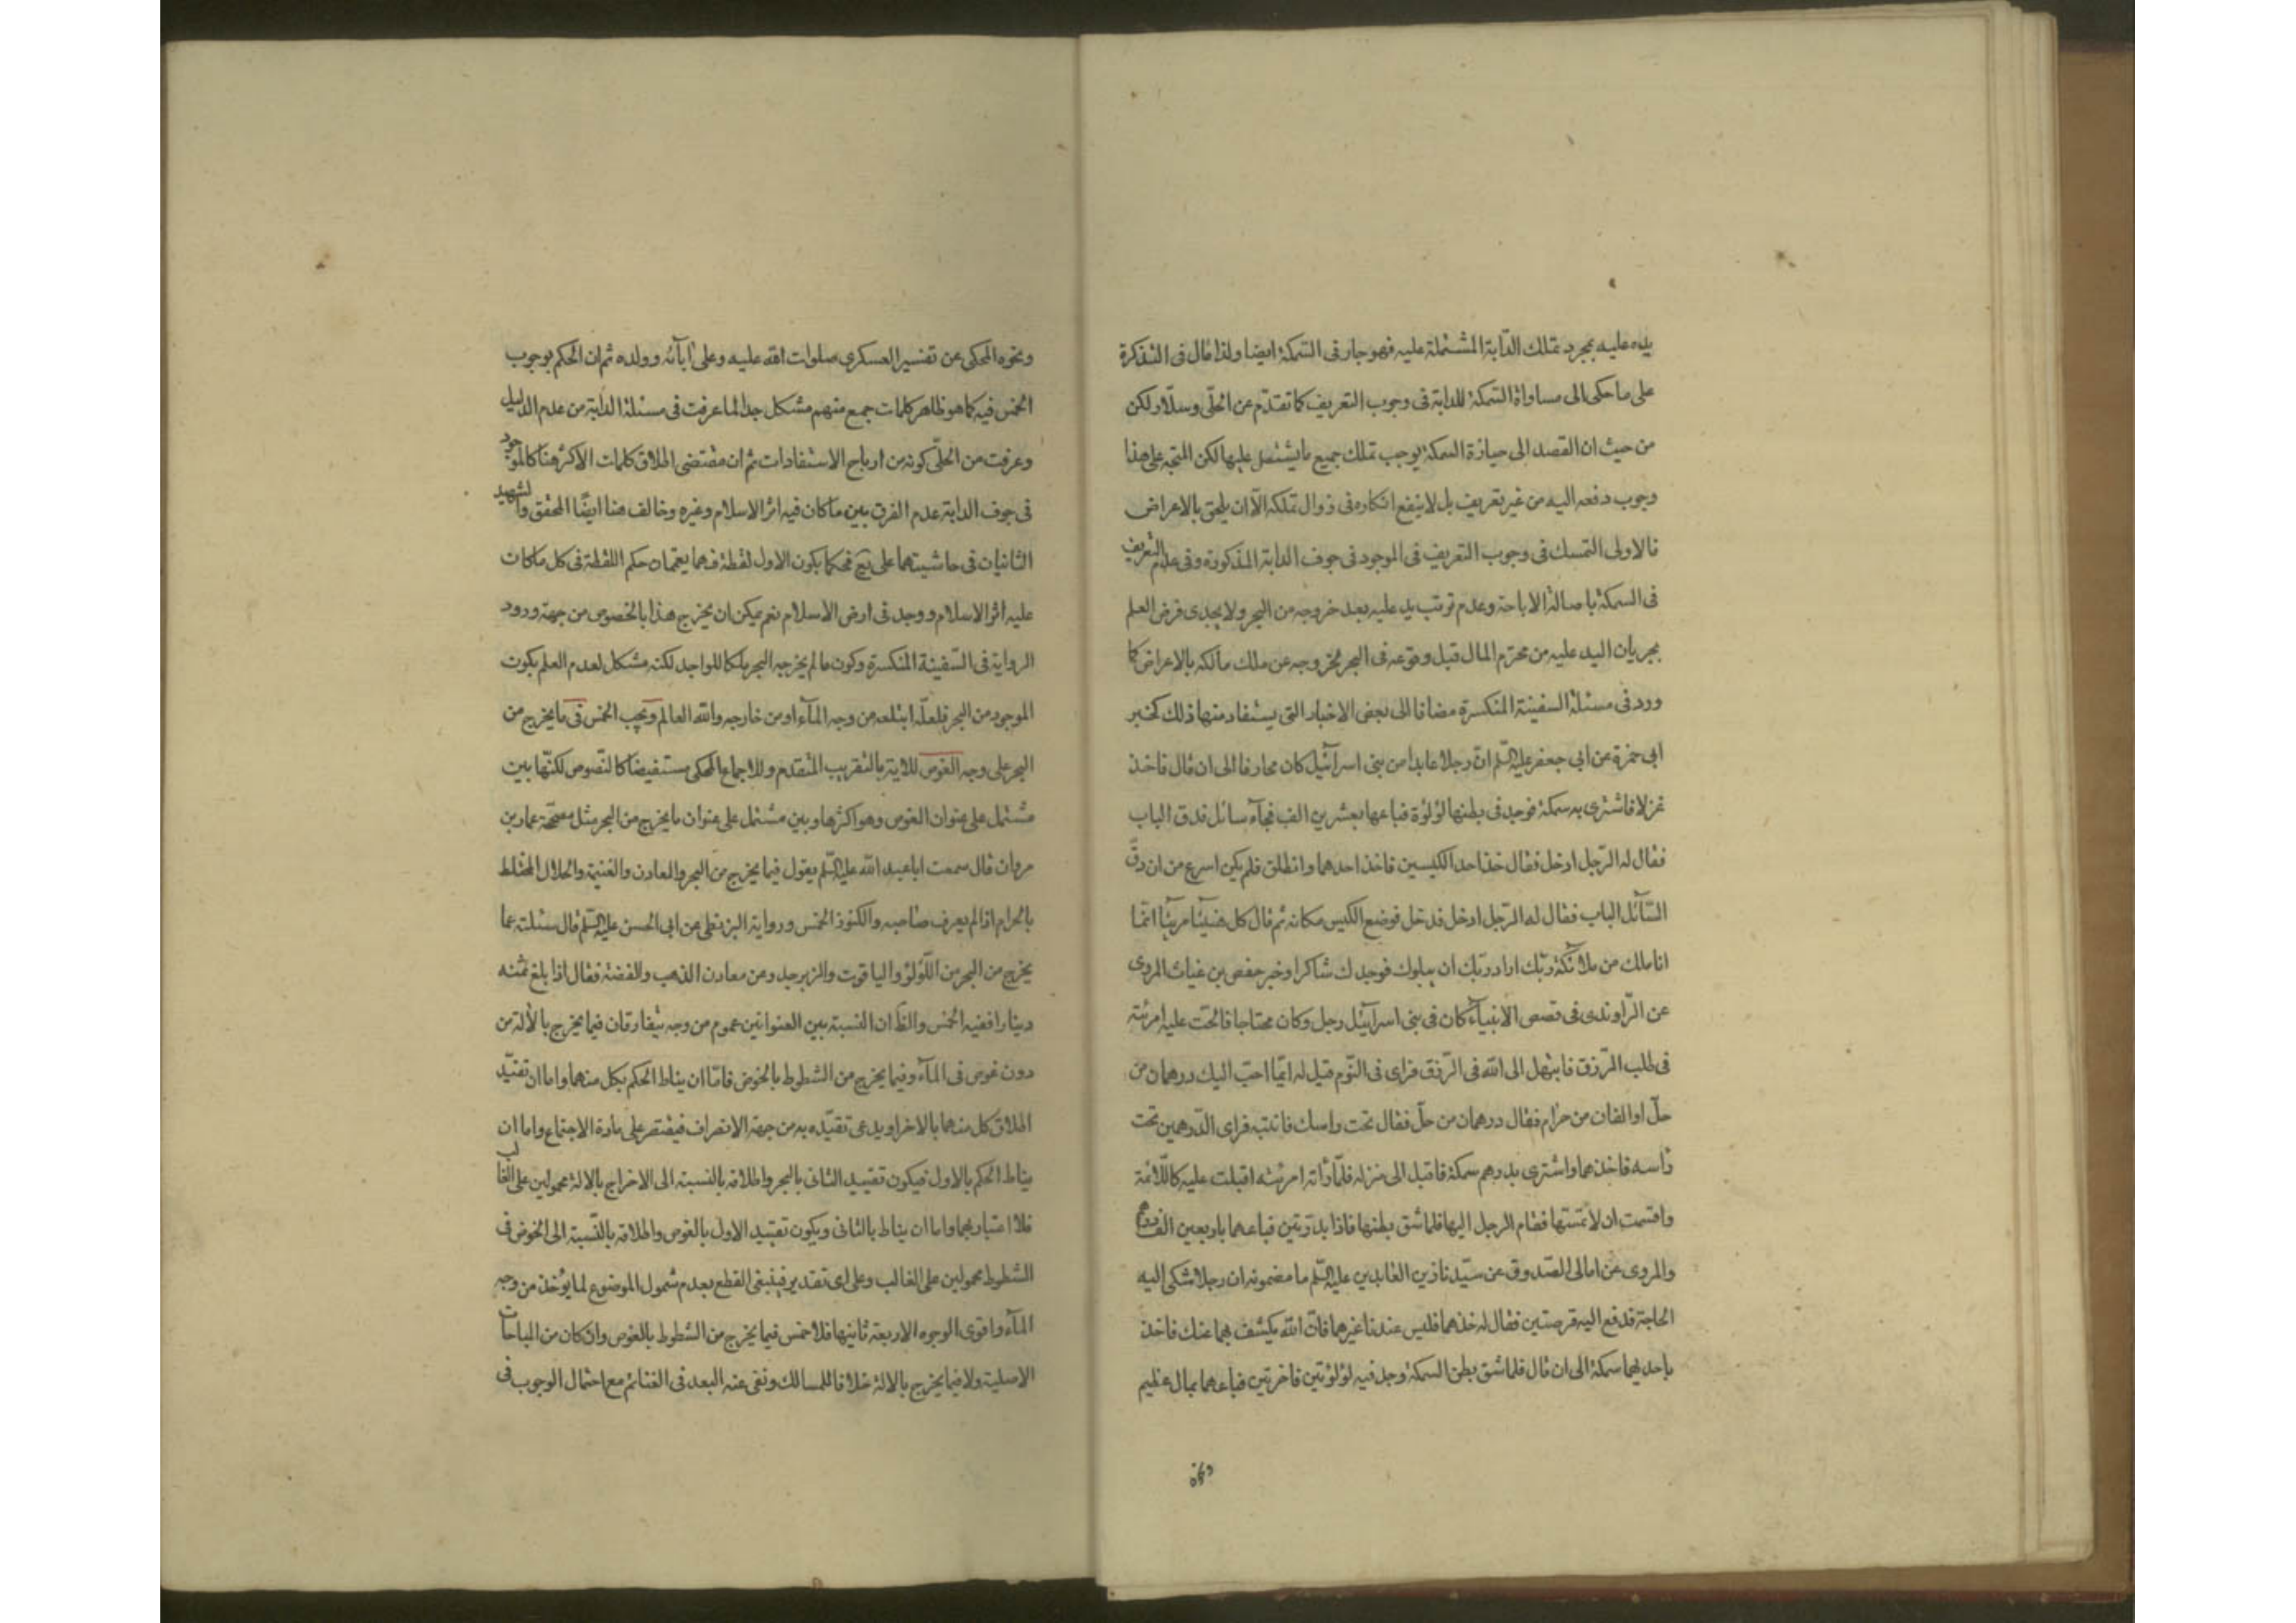 يده عليه بمجرد تملك الدّابة المشتملة عليه فهو جار فى السّمكة ايضا ولذا مال فى التذكرة
على ما حكى الى مساواة السّمكة للدابة فى وجوب التعريف كما تقدّم عن الحلّى وسلّار لكن
من حيث ان القصد الى حيازة السمكة يوجب تملك جميع ما يشتمل عليها لكن المتجه على هذا
وجوب دفعه اليه من غير تعريف بل لا ينفع انكاره فى زوال تملكه الّا ان يلحق بالاعراض
فالاولى التمسك فى وجوب التعريف فى الموجود فى جوف الدابة المذكورة وفى عدم التعريف
فى السمكة باصالة الاباحة وعدم ترتب يد عليه بعد خروجه من البحر ولا يجدى فرض العلم
بجريان اليد عليه من محترم المال قبل وقوعه فى البحر لخروجه عن ملك مالكه بالاعراض كما
ورد فى مسئلة السفينة المنكسرة مضافا الى بعض الاخبار التى يستفاد منها ذلك كخبر
ابى حمزة عن ابى جعفر عليه السّلم انّ رجلا عابدا من بنى اسرآئيل كان محارفا الى ان قال فاخذ
غزلا فاشترى به سمكة فوجد فى بطنها لؤلؤة فباعها بعشرين الف فجآء سائل فدق الباب
فقال له الرّجل ادخل فقال خذ احد الكيسين فاخذ احدهما وانطلق فلم يكن اسرع من ان دقّ
السّآئل الباب فقال له الرّجل ادخل فدخل فوضع الكيس مكانه ثم قال كل هنيئا مريئا انّما
انا ملك من ملائكة ربّك اراد ربّك ان يبلوك فوجدك شاكرا وخبر حفص بن غياث المروى
عن الرّاوندى فى قصص الانبيآء كان فى بنى اسرآئيل رجل وكان محتاجا فالحّت عليه امرئته
فى طلب الرّزق فابتهل الى الله فى الرّزق فراى فى النّوم قيل له ايّما احبّ اليك درهمان من
حلّ او الفان من حرام فقال درهمان من حلّ فقال تحت راسك فانتبه فراى الدّرهمين تحت
راسه فاخذهما واشترى بدرهم سمكة فاقبل الى منزله فلمّا راته امرئته اقبلت عليه كاللّائمة
واقسمت ان لا تمسّها فقام الرجل اليها فلما شق بطنها فاذا بدرّتين فباعهما باربعين الف درهم
والمروى عن امالى الصّدوق عن سيّدنا زين العابدين عليه السّلم ما مضمونه ان رجلا شكى اليه
الحاجة فدفع اليه قرصتين فقال له خذهما فليس عندنا غيرهما فانّ الله يكشف بهما عنك فاخذ
باحديهما سمكة الى ان قال فلما شق بطن السمكة وجد فيه لؤلؤتين فاخرتين فباعهما بمال عظيم
ونحوه
ونحوه المحكى عن تفسير العسكرى صلوات الله عليه وعلى ابآئه وولده ثم ان الحكم بوجوب
الخمس فيه كما هو ظاهر كلمات جمع منهم مشكل جدا لما عرفت فى مسئلة الدابة من عدم الدليل
وعرفت من الحلّى كونه من ارباح الاستفادات ثم ان مقتضى اطلاق كلمات الاكثر هنا كالموجود
فى جوف الدابة عدم الفرق بين ما كان فيه اثر الاسلام وغيره وخالف هنا ايضًا المحقق والشهيد
الثانيان فى حاشيتهما على يع فحكما بكون الاول لقطة فهما يعممان حكم اللقطة فى كل ما كان
عليه اثر الاسلام ووجد فى ارض الاسلام نعم يمكن ان يخرج هذا بالخصوص من جهة ورود
الرواية فى السّفينة المنكسرة وكون ما لم يخرجه البحر ملكا للواجد لكنه مشكل لعدم العلم بكون
الموجود من البحر فلعلّه ابتلعه من وجه المآء او من خارجه والله العالم ويجب الخمس فى ما يخرج من
البحر على وجه الغوص للاية بالتقريب المتقدم وللاجماع المحكى مستفيضا كالنّصوص لكنّها بين
مشتمل على عنوان الغوص وهو اكثرها وبين مشتمل على عنوان ما يخرج من البحر مثل مصحّحة عمار بن
مروان قال سمعت ابا عبد الله عليه السّلم يقول فيما يخرج من البحر والمعادن والغنيمة والحلال المختلط
بالحرام اذا لم يعرف صاحبه والكنوز الخمس ورواية البزنطى عن ابى الحسن عليه السّلم قال سئلته عما
يخرج من البحر من اللّؤلؤ والياقوت والزبرجد وعن معادن الذهب والفضة فقال اذا بلغ ثمنه
دينارا ففيه الخمس والظّ ان النسبة بين العنوانين عموم من وجه يتفارقان فيما يخرج بالالة من
دون غوص فى المآء وفيما يخرج من الشطوط بالخوض فامّا ان يناط الحكم بكل منهما واما ان تقيّد
اطلاق كل منهما بالاخر او يدعى تقيّده به من جهة الانصراف فيقتصر على مادة الاجتماع واما ان
يناط الحكم بالاول فيكون تقييد الثانى بالبحر واطلاقه بالنسبة الى الاخراج بالالة محمولين على الغالب
فلا اعتبار بهما واما ان يناط بالثانى ويكون تقييد الاول بالغوص واطلاقه بالنّسبة الى الخوض فى
الشطوط محمولين على الغالب وعلى اى تقدير فينبغى القطع بعدم شمول الموضوع لما يؤخذ من وجه
المآء واقوى الوجوه الاربعة ثانيها فلا خمس فيما يخرج من الشطوط بالغوص وان كان من المباحات
الاصلية ولا فيما يخرج بالالة خلافا للمسالك ونفى عنه البعد فى الغنائم مع احتمال الوجوب فى